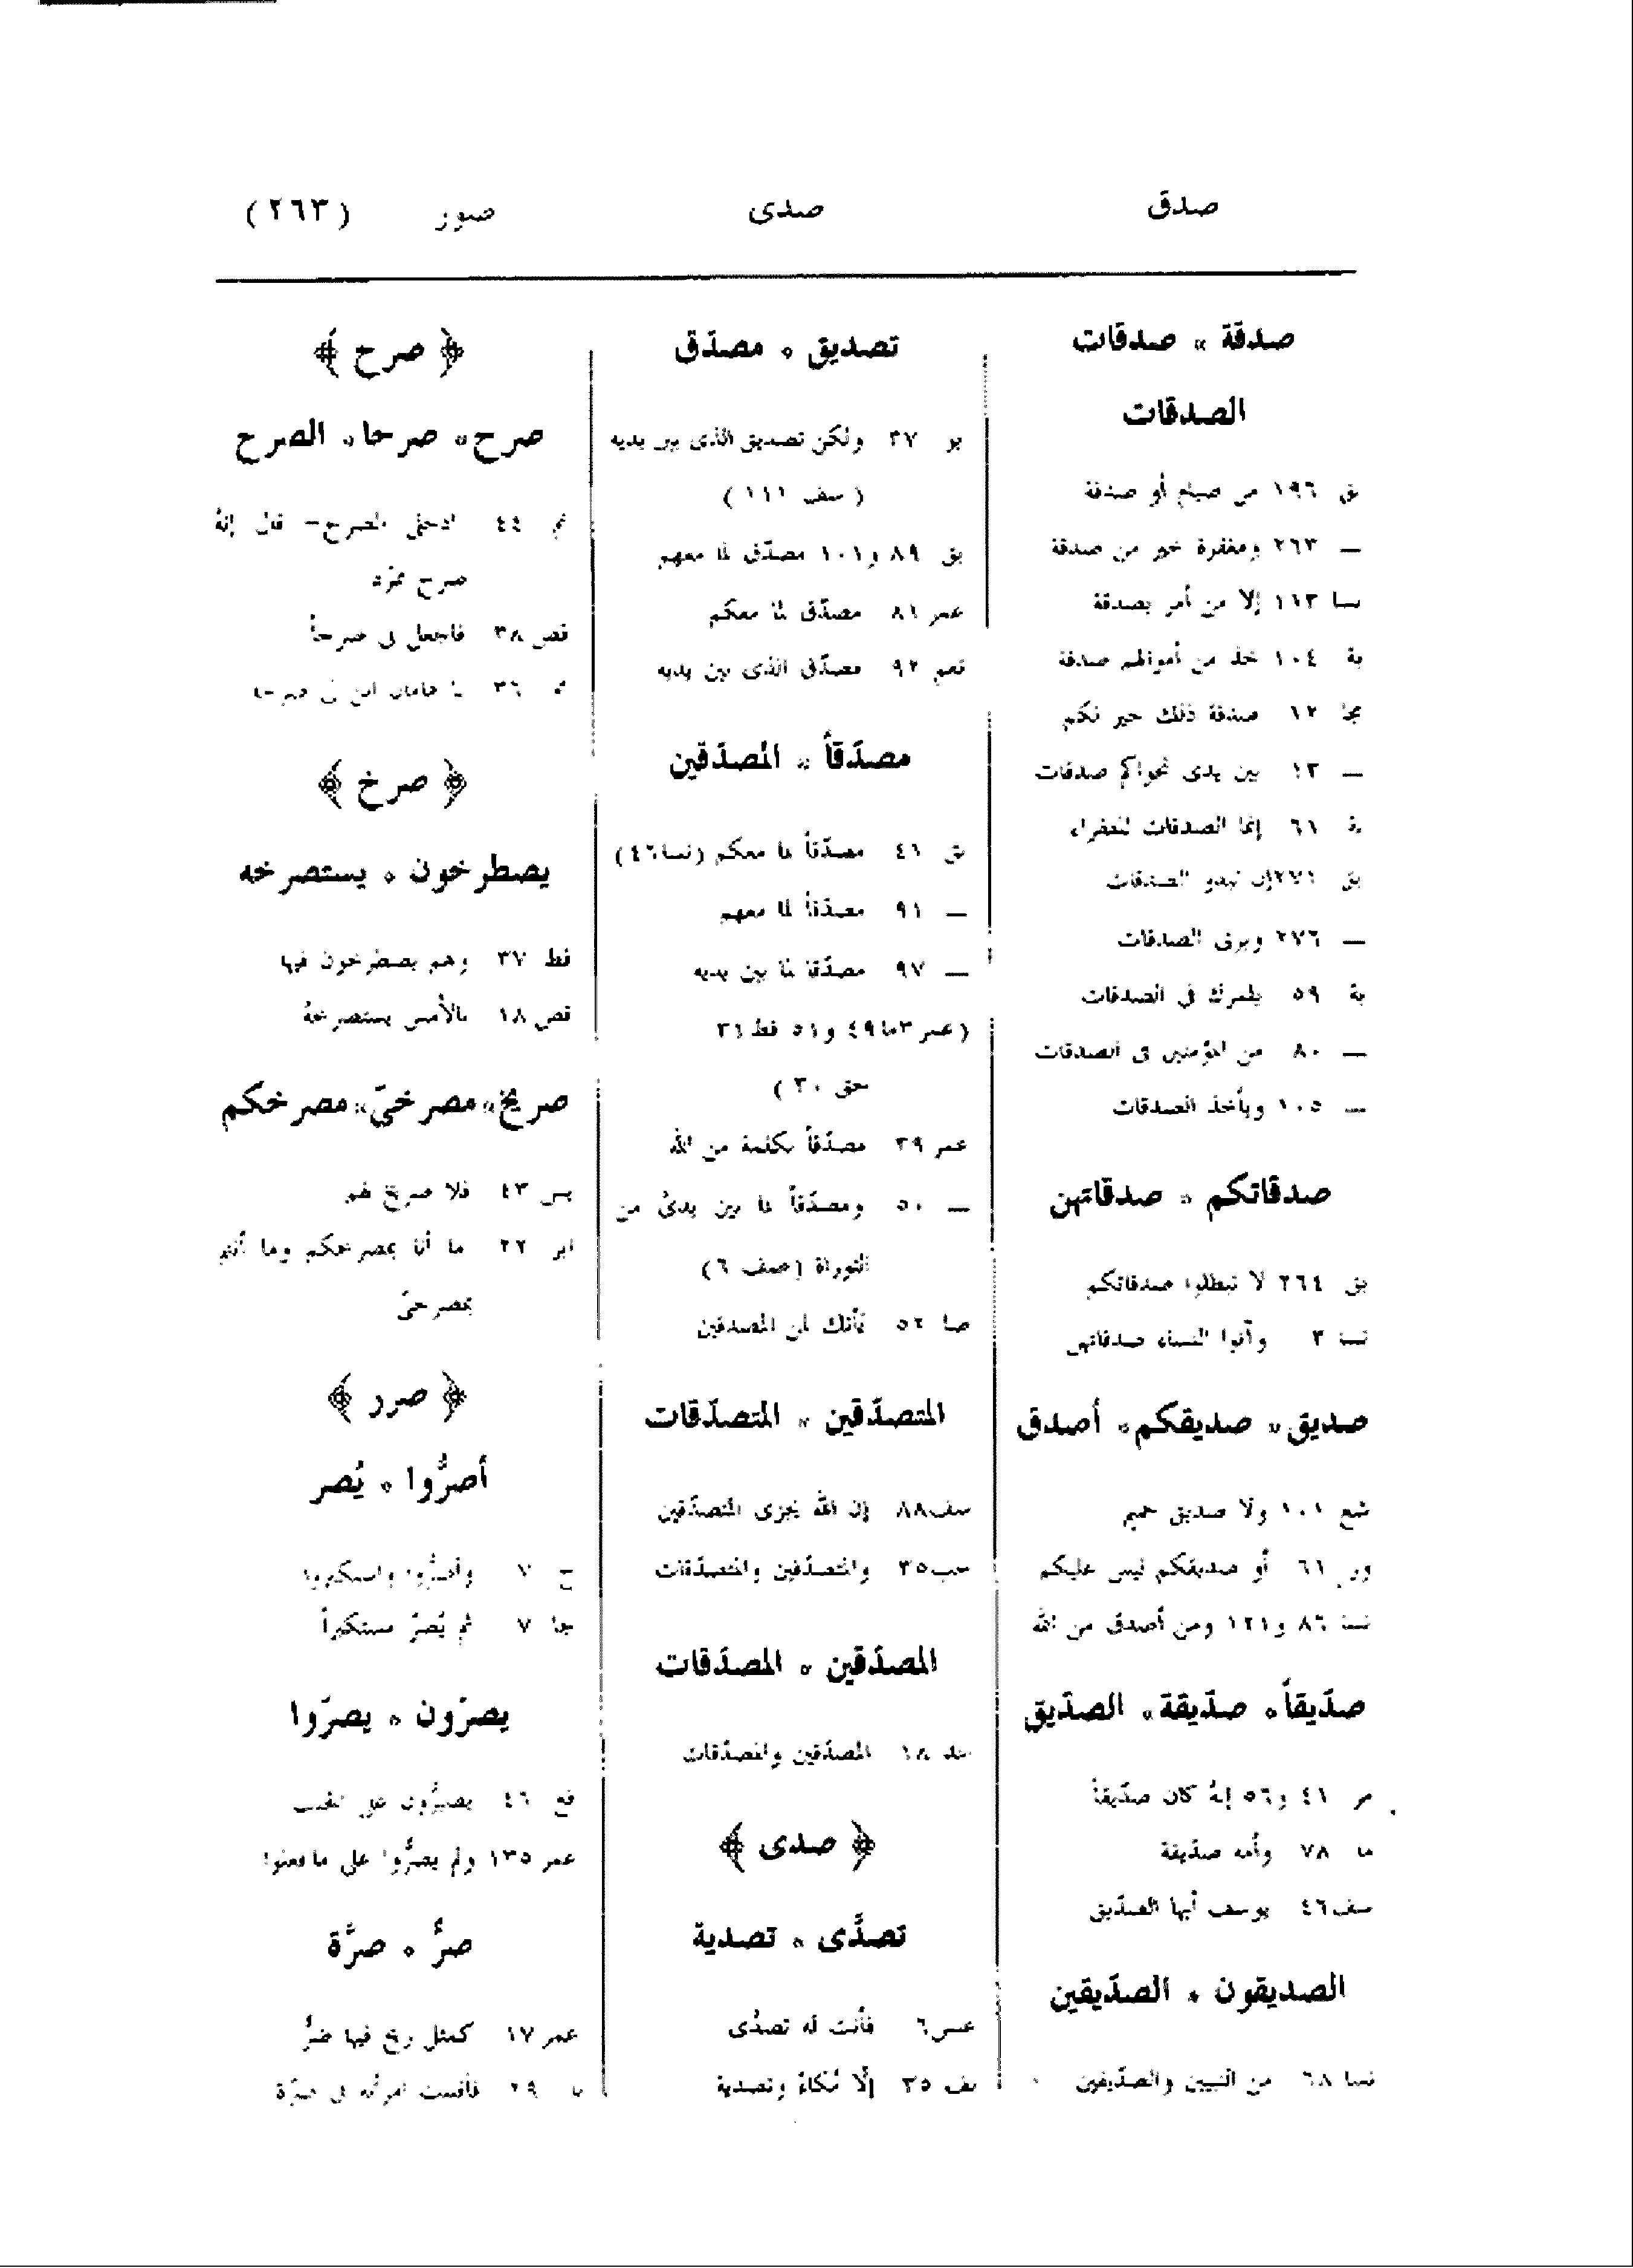 صدق
صدى
صور (٢٦٣)
صدقة * صدقات
الصدقات
بق ١٩٦ من صيام أو صدقة
— ٢٦٣ ومغفرة خير من صدقة
نسا ١١٣ إلا من أمر بصدقة
بة ١٠٤ خذ من أموالهم صدقة
مجا ١٢ صدقة ذلك خير لكم
— ١٣ بين يدى نجواكم صدقات
بة ٦١ إنما الصدقات للفقراء
بق ٢٧١ إن تبدو الصدقات
— ٢٧٦ ويربى الصدقات
بة ٥٩ يلمزك فى الصدقات
— ٨٠ من المؤمنين فى الصدقات
— ١٠٥ ويأخذ الصدقات
صدقاتكم * صدقاتهن
بق ٢٦٤ لا تبطلوا صدقاتكم
نسا ٣ وآتوا النساء صدقاتهن
صديق * صديقكم * أصدق
شع ١٠١ ولا صديق حميم
ور ٦١ أو صديقكم ليس عليكم
نسا ٨٦ و١٢١ ومن أصدق من الله
صدّيقاً * صدّيقة * الصدّيق
مر ٤١ و٥٦ إنهُ كان صدّيقاً
ما ٧٨ وأمه صدّيقة
سف ٤٦ يوسف أيها الصدّيق
الصديقون * الصدّيقين
نسا ٦٨ من النبيين والصدّيقين
تصديق * مصدّق
يو ٣٧ ولكن تصديق الذى بين يديه
(سف ١١١)
بق ٨٩ و١٠١ مصدّق لما معهم
عمر ٨١ مصدّق لما معكم
نعم ٩٢ مصدّق الذى بين يديه
مصدّقاً * المصدّقين
بق ٤١ مصدّقاً لما معكم (نسا ٤٦)
— ٩١ مصدّقاً لما معهم
— ٩٧ مصدّقا لما بين يديه
(عمر ٣ ما ٤٩ و٥١ فط ٣١
حق ٣٠)
عمر ٣٩ مصدّقاً بكلمة من الله
— ٥٠ ومصدّقاً لما بين يدىَّ من
التوراة (صف ٦)
صا ٥٢ ئأنك لمن المصدقين
المتصدّقين * المتصدّقات
سف ٨٨ إن الله يجزى المتصدّقين
حب ٣٥ والمتصدّقين والمتصدّقات
المصدّقين * المصدّقات
حد ١٨ المصدّقين والمصدّقات
﴿ صدى ﴾
تصدَّى * تصدية
عس ٦ فأنت له تصدّى
نف ٣٥ إلَّا مُكاءً وتصدية
﴿ صرح ﴾
صرح * صرحا * الصرح
نم ٤٤ ادخلى الصرح – قال إنهُ
صرح ممرّد
قص ٣٨ فاجعل لى صرحاً
٣٦ يا هامان ابن لى صرحا
﴿ صرخ ﴾
يصطرخون * يستصرخه
فط ٣٧ وهم يصطرخون فيها
قص ١٨ بالأمس يستصرخهُ
صريخ * مصرخىّ * مصرخكم
يس ٤٣ فلا صريخ لهم
ابر ٢٢ ما أنا بمصرخكم وما أنتم
بمصرخىّ
﴿ صرر ﴾
أصرُّوا * يُصر
ح ٧ وأصرُّوا واستكبروا
جا ٧ ثم يُصرّ مستكبراً
يصرّون * يصرّوا
قع ٤٦ يصرُّون على الحنث
عمر ١٣٥ ولم يصرُّوا على ما فعلوا
صرٌّ * صرَّة
عمر ١٧ كمثل ريح فيها صرٌّ
٢٩ فأقبلت امرأته فى صرّة